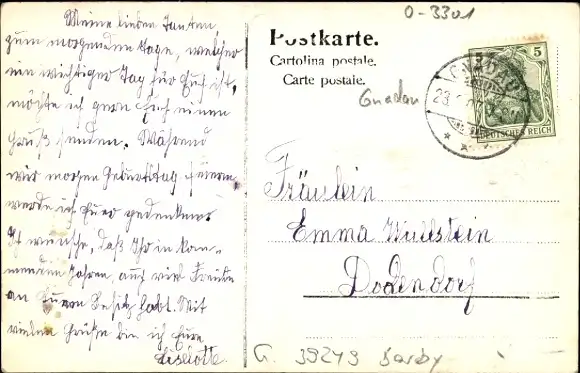 Meine lieben Tanten,
zum morgenden Tage, welcher
ein wichtiger Tag für Euch ist,
möchte ich gern Euch einen
Gruß senden. Während
wir morgen Geburtstag feiern,
werde ich Eurer gedenken.
Ich wünsche, daß Ihr in kom-
menden Jahren auch viel Freude
an Eurem Besitz habt. Mit
vielen Grüßen bin ich Eure
Liselotte.
0-3301
Postkarte.
Cartolina postale.
Carte postale.
Gnadau
GNADAU
5
DEUTSCHES REICH
Fräulein
Emma
Dodendorf
G. 39249 Barby